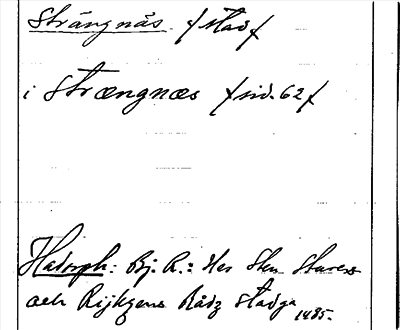 Strängnäs /stad/
i Strængnæs /sid. 62/
Hadorph: Bj. R.: Her Sten Sturess
och Rijkzens Rådz stadga
1485.